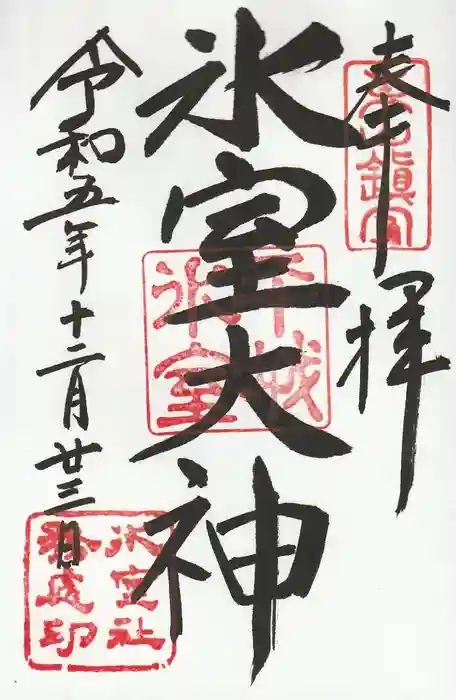 奉拝
氷室大神
令和五年十二月廿三日
平城
氷室
氷室社
務處印